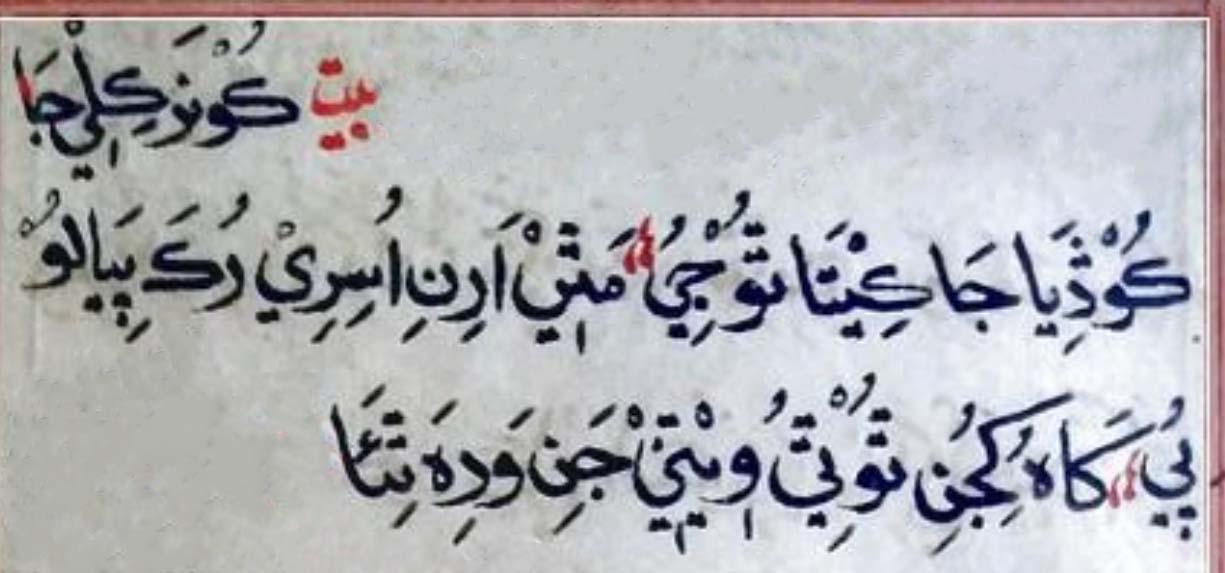 بيت كُوْنَرَ كِلِيْ جَا
كُوْڎِيَا جَا كِيْتَا تُوْ جِيُ، مَتِيْ اَرِنِ اُسِرِيْ رُكَ پِيَالُوْ
پِيُ، كَاهُ كِجُنِ تُوْتِيُ وِيْتِيْ جَنِ وَدِهَ تِئَا